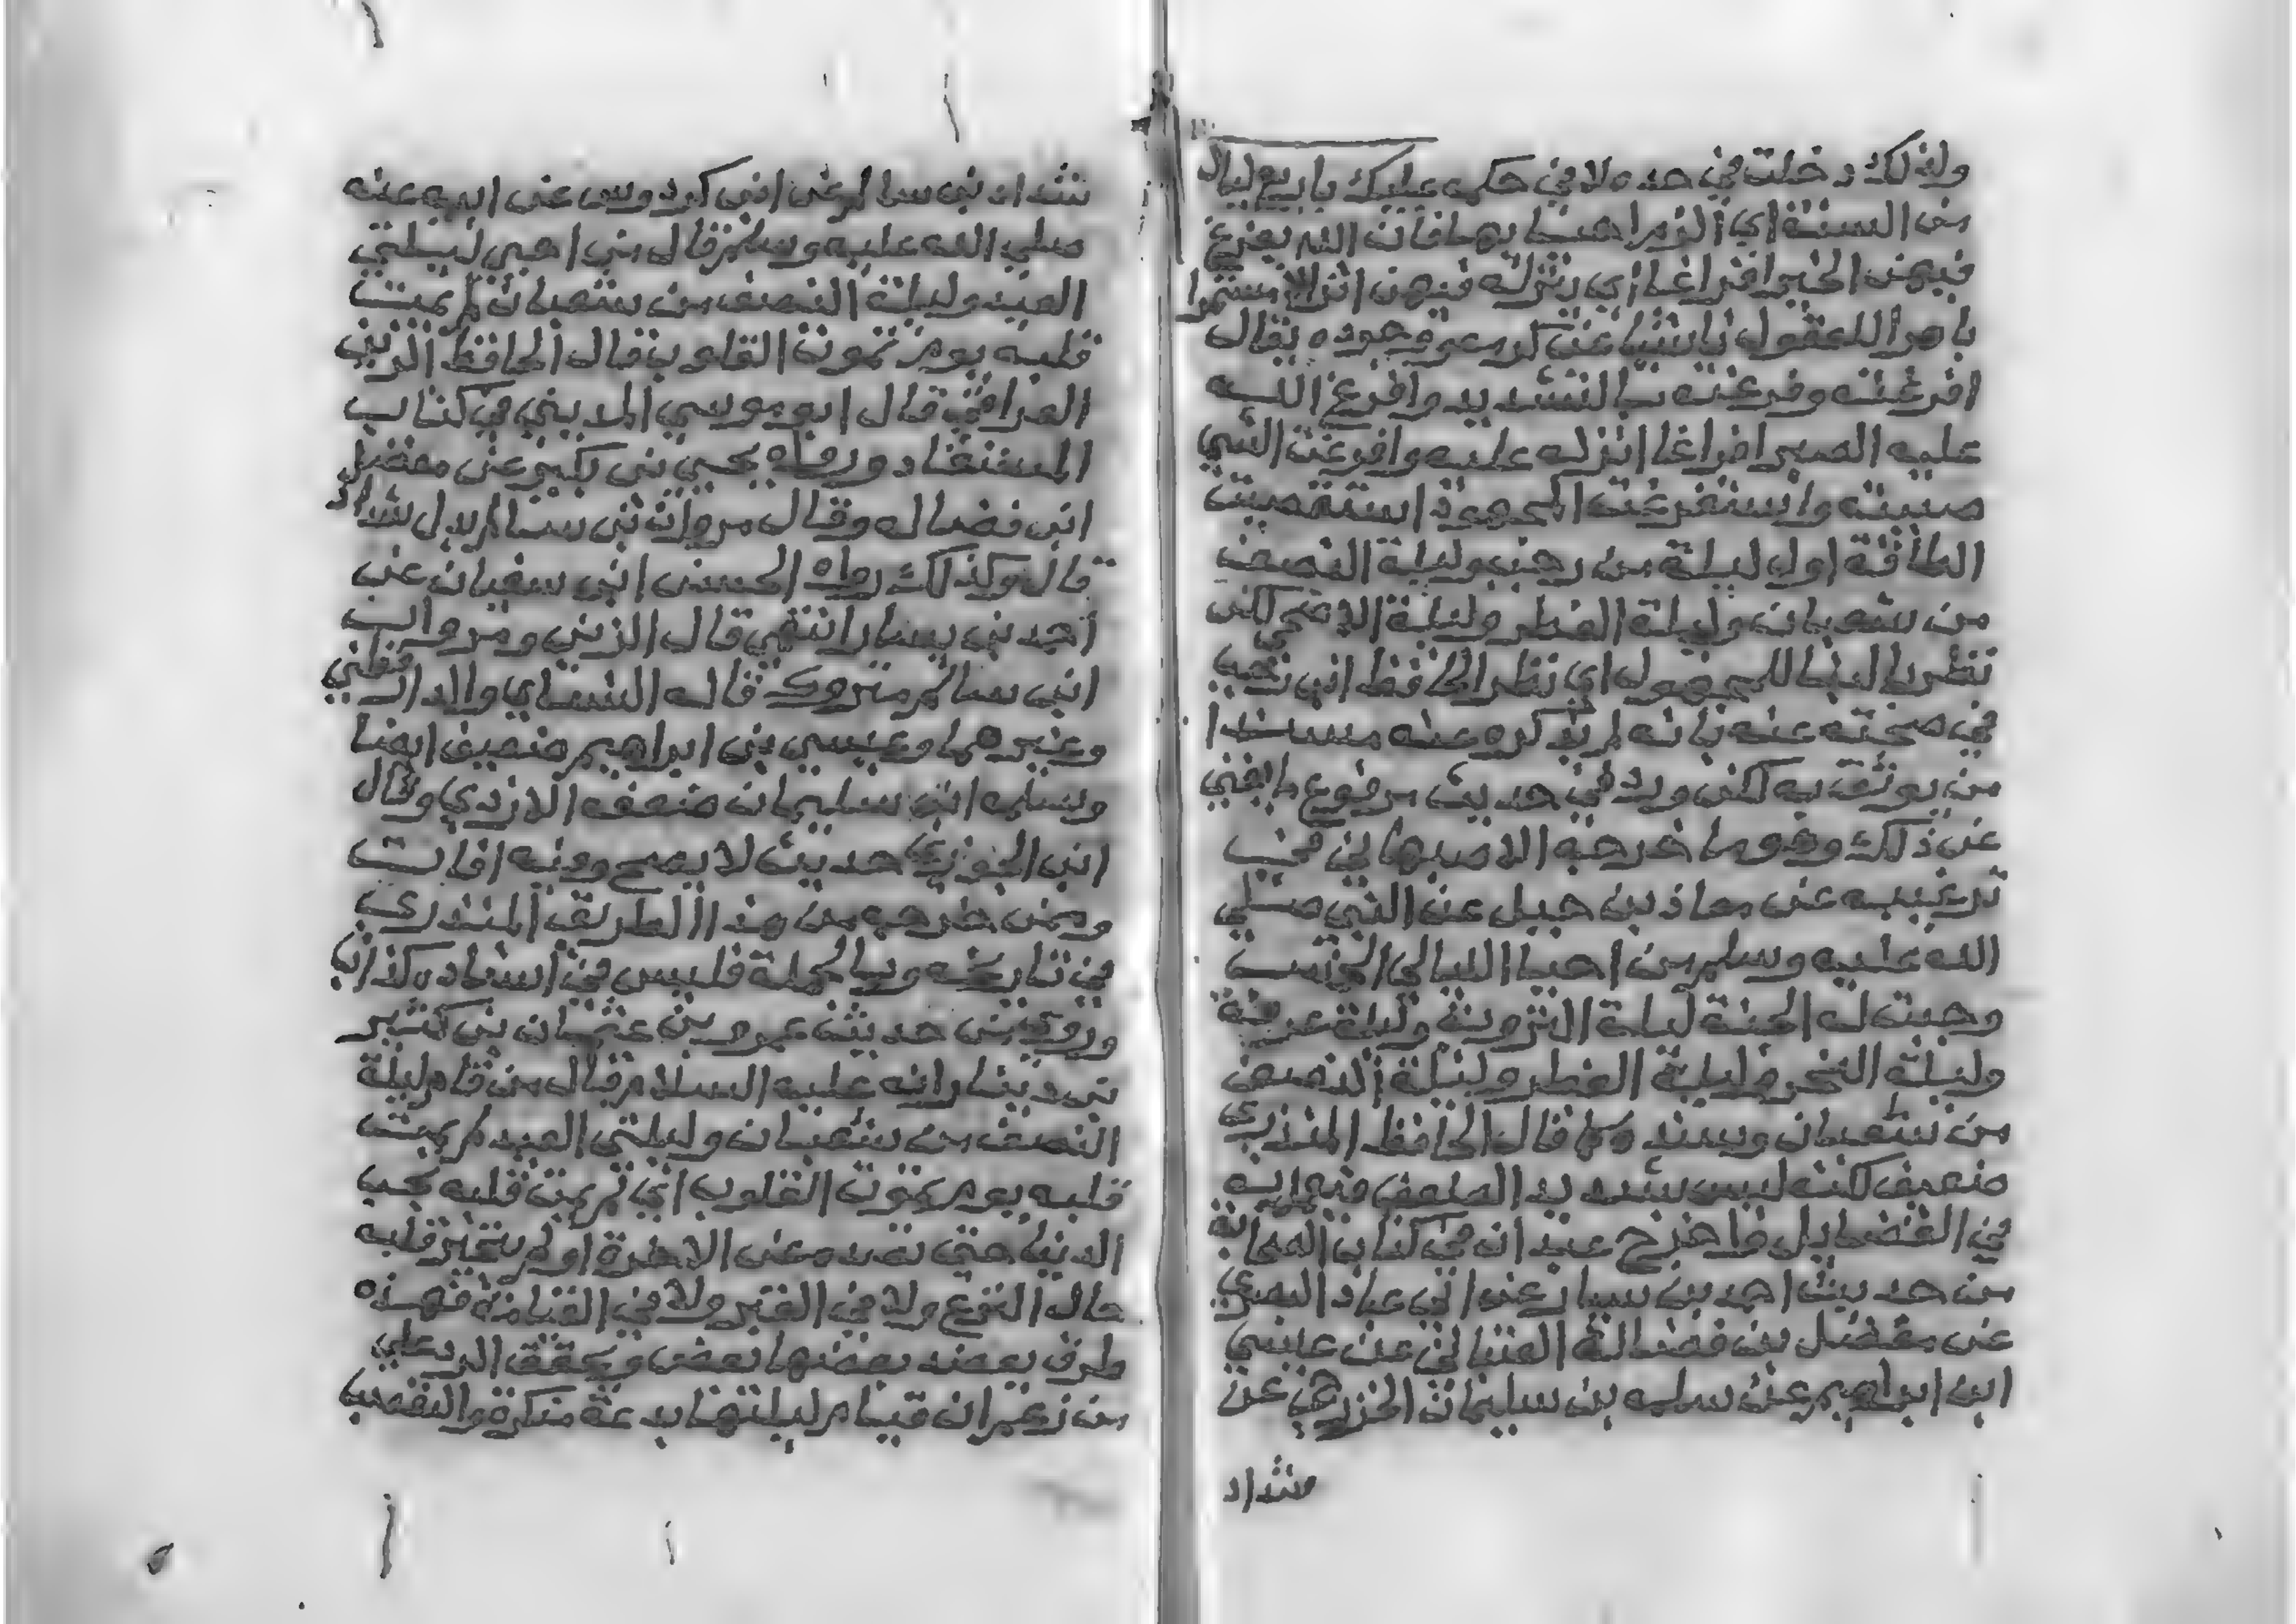 ولذلك دخلت في حده لا في حكمه عليك باربع ليال
من السنة اي الزم احياها فان الله يفرغ
فيهن الخير افراغا اي ينزله فيهن انزالا مستمرا
باهرا للعقول ناشيا عن كرمه وجوده يقال
افرغته وفرغته بالتشديد وافرغ الله
عليه الصبر افراغا انزله عليه وافرغت الشي
صببته واستفرغت المجهود استقصيت
الطاقة اول ليلة من رجب وليلة النصف
من شعبان وليلة الفطر وليلة الاضحي لكن
نظر بالبنا للمجهول اي نظر الحافظ ابن
في صحته عنه بانه لم يذكره عنه مسندا
من يوثق به لكن ورد في حديث مرفوع ما يغني
عن ذلك وهو ما خرجه الاصبهاني في
ترغيبه عن معاذ بن جبل عن النبي صلي
الله عليه وسلم من احيا الليالي الخمس
وجبت له الجنة ليلة التروية وليلة عرفة
وليلة النحر وليلة الفطر وليلة النصف
من شعبان وسنده كما قال الحافظ المنذري
ضعيف لكنه ليس شديد الضعف فيعمل به
في الفضايل واخرج عبدان في كتاب الصحابة
من حديث احمد بن سيار عن ابي عباد البصري
عن مفضل بن فضالة القتباني عن عيسي
ابن ابراهيم عن سلمه بن سليمان الخزرجي عن
شداد
شداد بن سالم عن ابن كردوس عن ابيه عنه
صلي الله عليه وسلم قال من احيي ليلتي
العيد وليلة النصف من شعبان لم يمت
قلبه يوم تموت القلوب قال الحافظ الزين
العراقي قال ابو موسي المديني في كتاب
المستفاد ورواه يحيي بن بكير عن مفضل
ابن فضاله وقال مروان بن سالم بدل شداد
قال وكذلك رواه الحسن ابن سفيان عن
احمد بن يسار انتهي قال الزين ومروان
ابن سالم متروك قاله النساي والدارقطني
وغيرهما وعيسي بن ابراهيم ضعيف ايضا
وسلمه ابن سليمان ضعفه الازدي وقال
ابن الجوزي حديث لا يصح وفيه افات
وممن خرجه من هذا الطريق المنذري
في تاريخه وبالجملة فليس في اسناده كذاب
وروي من حديث عمرو بن عثمان بن كثير
بن دينار انه عليه السلام قال من قام ليلة
النصف من شعبان وليلتي العيد لم يمت
قلبه يوم تموت القلوب اي لم يمت قلبه بحب
الدنيا حتي تصده عن الاخرة او لم يتحير قلبه
حال النزع ولا في القبر ولا في القيامة فهذه
طرق يعضد بعضها بعض ويحقق الرد علي
من زعم ان قيام ليلتها بدعة منكرة والتعصب